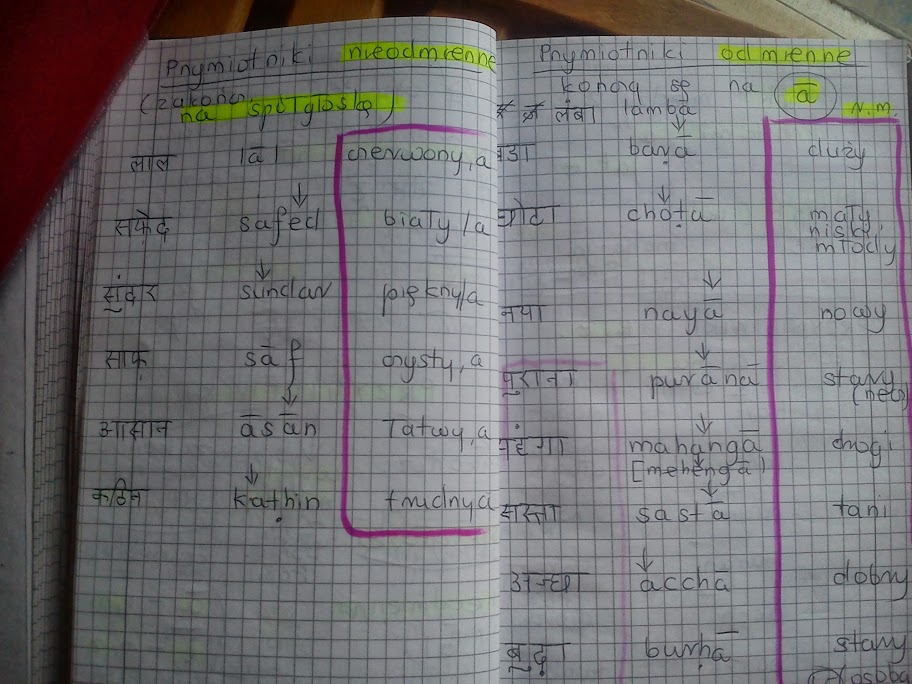 Przymiotniki nieodmienne
(zakończ.
na spółgłoskę)
लाल lāl czerwony, a
सफ़ेद safed biały/a
सुंदर sundar piękny/a
साफ़ sāf czysty, a
आसान āsān łatwy, a
कठिन kaṭhin trudny a
Przymiotniki odmienne
kończą się na ā
लंबा lambā N.m.
बड़ा baṛā duży
छोटा choṭā mały
niski,
młody
नया nayā nowy
पुराना purānā stary
महंगा mahangā drogi
[mehengā]
सस्ता sastā tani
अच्छा acchā dobry
burhā stary
(osoba